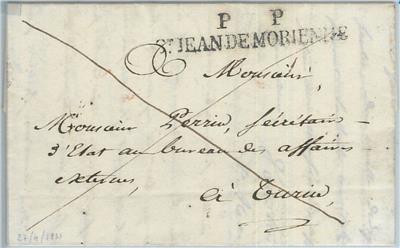 P P
ST JEAN DE MORIENNE
Monsieur
Monsieur Perrin, Sécrétaire
d'Etat au bureau des affaires
externes,
à Turin,